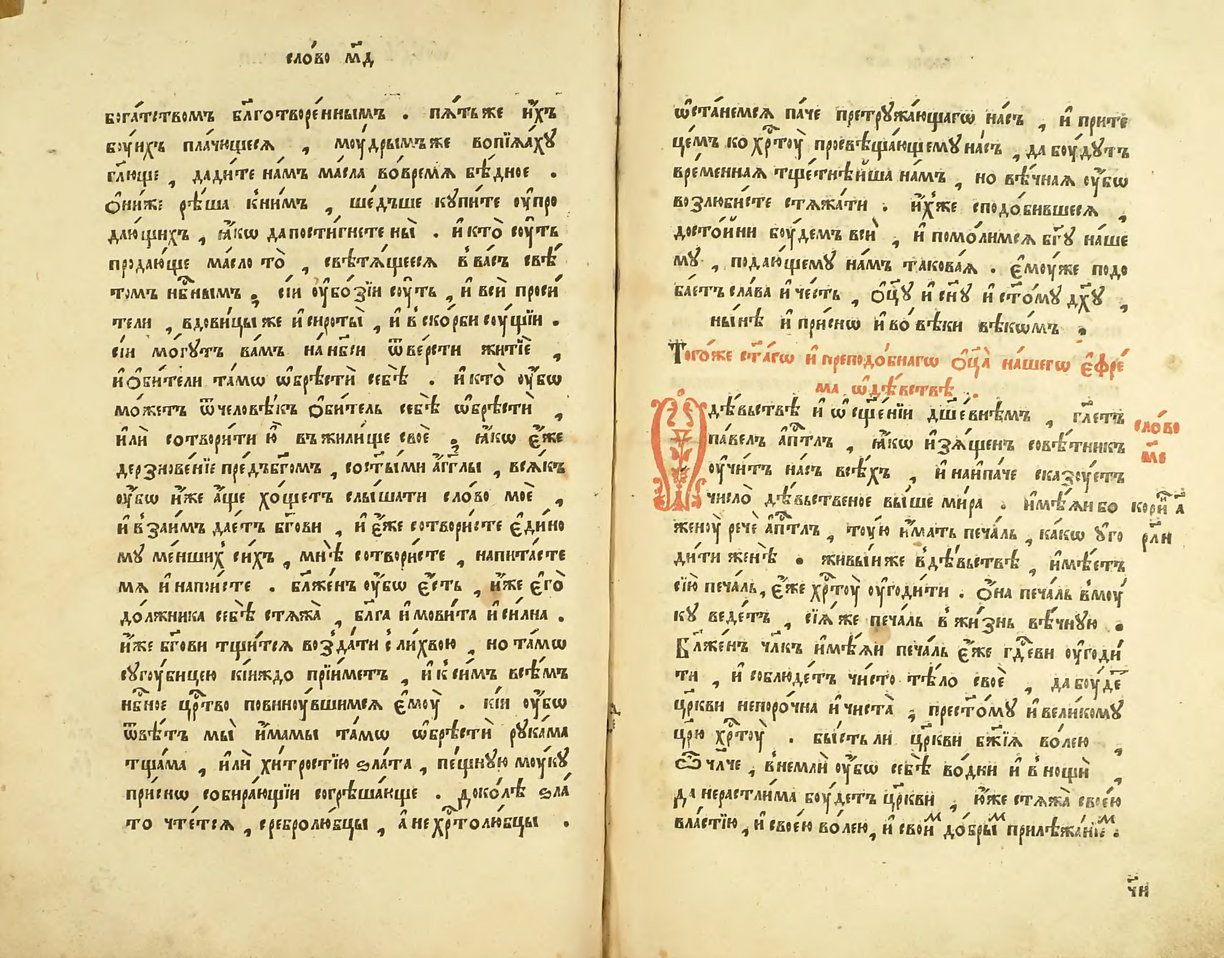 сло́во м҃д
бога́тством благотворе́нным . пѧ́тьже и҆́хъ
бꙋ́ихъ пла́чющесѧ , мꙋ́дрымъже вопїѧ́хꙋ
гл҃юще , дади́те на́мъ ма́сла во́времѧ бѣ́дное .
Ѻ҆ни́же рѣ́ша кни́мъ , ше́дъше кꙋпи́те ᲂу҆про
даю́щихъ , ꙗ҆́кѡ да постигнете ны̀ . и҆ кто̀ сꙋ́ть
продаю́ще ма́сло то̀ , свѣтѧ́щеесѧ в ва́съ свѣ́
томъ нб҃нымъ ; сїи ᲂу҆бо́зїи сꙋ́ть , и҆ всѝ проси́
тели , вдови́цы же и҆ сироты̀ , и҆ в ско́рби сꙋ́щїи .
сїи мо́гꙋтъ ва́мъ на нб҃си ѿве́рсти житїѐ ,
и҆ ѻ҆би́тели та́мѡ ѡ҆брѣстѝ себѣ̀ . и҆ кто̀ ᲂу҆́бѡ
мо́жетъ ѿ человѣ́къ ѻ҆би́тель себѣ̀ ѡ҆брѣстѝ ,
и҆лѝ сотвори́ти ю҆̀ въ жили́ще своѐ ; ꙗ҆́кѡ є҆́же
дерзнове́нїе предъ бг҃омъ , со ст҃ы́ми а҆́гг҃лы , всѧ́къ
ᲂу҆́бѡ и҆́же а҆́ще хо́щетъ слы́шати сло́во моѐ ,
и҆ в за́имъ дае́тъ бг҃ови , и҆ є҆́же сотвори́сте є҆ди́но
мꙋ̀ ме́нших си́хъ , мнѣ̀ сотвори́сте , напита́сте
мѧ̀ и҆ напои́сте . бл҃же́нъ ᲂу҆́бѡ є҆́сть , и҆́же є҆го̀
должника̀ себѣ̀ стѧжа̀ , бл҃га и҆мови́та и҆ си́лна .
и҆́же бг҃ови тщи́тсѧ возда́ти с ли́хвою , но та́мѡ
сꙋгꙋ́бицею кі́иждо прїи́метъ , и҆ к си́мъ всѣ́мъ
нб҃ное цр҇тво повинꙋ́вшимсѧ є҆мꙋ̀ . кі́и ᲂу҆́бѡ
ѿвѣ́тъ мы̀ и҆́мамы та́мѡ ѡ҆брѣстѝ рꙋка́ма
тща́ма , и҆лѝ хи́тростїю ѕла́та , пе́щнꙋю мꙋ́кꙋ
при́снѡ собира́ющїи согрѣша́юще . доко́лѣ ѕла́
то чте́тсѧ , сребролю́бцы , а҆ не хр҇толю́бцы .
ѡ҆ста́немсѧ па́че претрꙋжа́ющагѡ на́съ , и҆ прите
це́мъ ко хр҇тꙋ̀ просвѣща́ющемꙋ на́съ , да бꙋ́дꙋтъ
вре́меннаѧ тщетнѣ́йша на́мъ , но вѣ́чнаѧ ᲂу҆́бѡ
возлюби́сте стѧжа́ти . и҆́хже сподо́бившесѧ ,
досто́йни бꙋ́демъ всѝ , и҆ помо́лимсѧ бг҃ꙋ на́ше
мꙋ , подаю́щемꙋ на́мъ такова́ѧ . є҆мꙋ́же подо
ба́етъ сла́ва и҆ че́сть , ѻ҆ц҃ꙋ̀ и҆ сн҃ꙋ и҆ ст҃о́мꙋ дх҃ꙋ ,
ны́нѣ и҆ при́снѡ и҆ во́ вѣки вѣкѡ́мъ .
Того́же ст҃а́гѡ и҆ преподо́бнагѡ ѻ҆ц҃а̀ на́шегѡ є҆фре́
ма , ѡ҆ дѣ́вствѣ̀ .
Ѡ҆ дѣ́вьствѣ и҆ ѡ҆ сщ҃е́нїи дш҃е́внѣмъ , гл҃етъ
па́велъ а҆п҇тлъ , ꙗ҆́кѡ и҆зѧ́щенъ совѣ́тникъ
ᲂу҆чи́тъ на́съ всѣ́хъ , и҆ наипа́че сказꙋ́етъ
число̀ дѣ́вьственое вы́ше ми́ра . и҆мѣ́ѧи бо
женꙋ̀ речѐ а҆п҇тлъ , тꙋ́ю и҆́мать печа́ль , ка́кѡ ᲂуго
ди́ти женѣ̀ . живы́иже в дѣ́вьствѣ , и҆мѣ́етъ
сїю̀ печа́ль , є҆́же хр҇тꙋ̀ ᲂу҆годи́ти . ѻ҆́на печа́ль в мꙋ́
кꙋ веде́тъ , сїѧ́ же печа́ль в жи́знь вѣ́чнꙋю .
Бл҃же́нъ чл҃къ и҆мѣ́ѧи печа́ль є҆́же гдⷭ҇еви ᲂу҆годи́
ти , и҆ соблюде́тъ чи́сто тѣ́ло своѐ , да бꙋ́де
цр҃кви непоро́чна и҆ чиста̀ , прест҃о́мꙋ и҆ вели́комꙋ
цр҃ю хр҇тꙋ̀ . бы́сть ли цр҃кви бж҃їѧ во́лею ,
Ѽ чл҃че , внемлѝ ᲂу҆́бѡ себѣ̀ во́ дни и҆ в но́щи ,
да нерастли́ма бꙋ́детъ цр҃кви , ю҆́же стѧжа̀ свое́ю
вла́стїю , и҆ свое́ю во́лею , и҆ свои́ⷨ до́брыⷨ прилѣжа́нїеⷨ .
сло́во
м҃е
кори́н҇ а҃
гл҃и
ч҃и